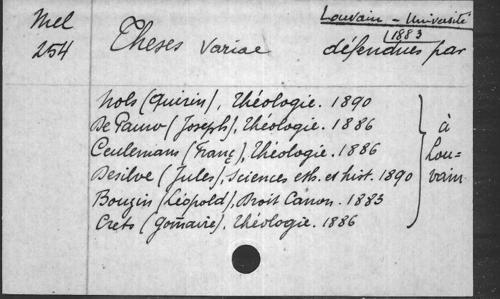 Mel
254
Theses variae
Louvain - Université
1883
défendues par
Nols (Quirin), Théologie. 1890
De Pauw (Joseph), Théologie. 1886
Ceulemans (Franç.), Théologie. 1886
Desilve (Jules), Sciences eth. et hist. 1890
Bougin (Léopold), Droit Canon. 1883
Crets (Gommaire), Théologie. 1886
à
Lou-
vain